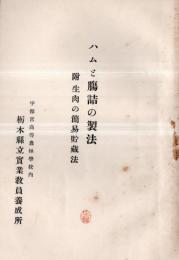 ハムと膓詰の製法
附 生肉の簡易貯藏法
宇都宮高等農林學校內
栃木縣立實業敎員養成所